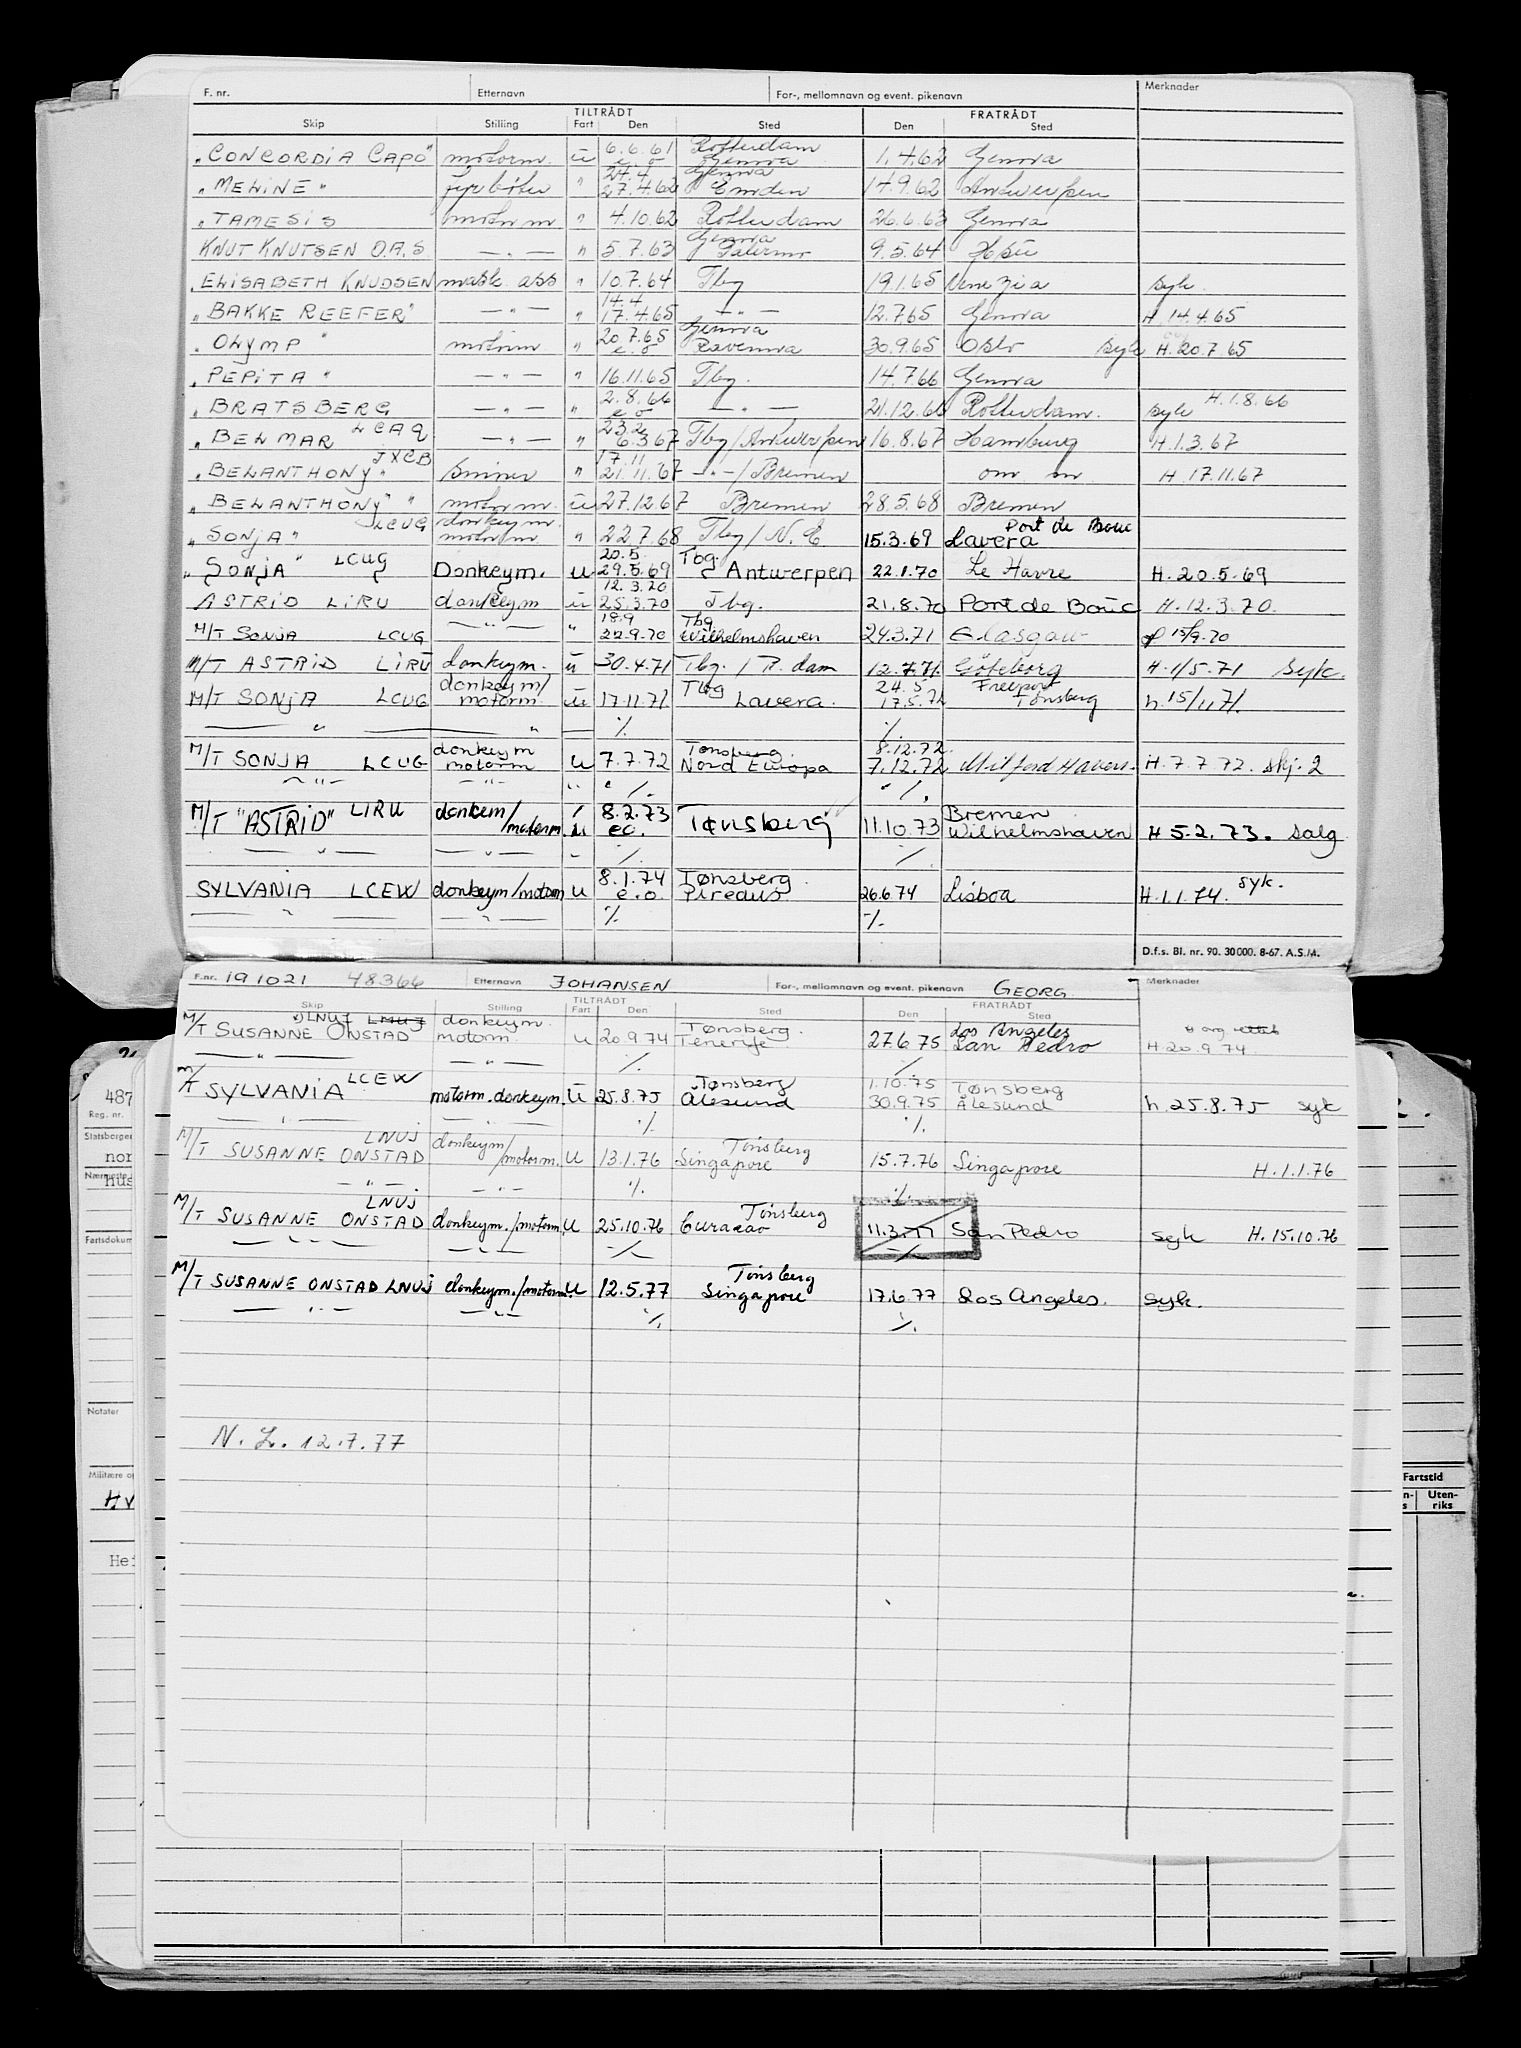 F. nr. Etternavn For-, mellomnavn og event. pikenavn Merknader
TILTRÅDT FRATRÅDT
Skip Stilling Fart Den Sted Den Sted
6.6.61 Rotterdam
"CONCORDIA CAPO" motorm. ü e.o Genova 1.4.62 Genova
24.4 Genova
"MELINE" fyrbøter " 27.4.62 Emden 14.9.62 Antwerpen
"TAMESIS motorm " 4.10.62 Rotterdam 26.6.63 Genova
Genova
KNUT KNUTSEN O.A.S. — " — " 5.7.63 Palermo 9.5.64
ELISABETH KNUDSEN mask. ass " 10.7.64 Tbg 19.1.65 Venezia syk.
14.4
"BAKKE REEFER" — " — " 17.4.65 — " — 12.7.65 Genova H 14.4.65
20.7.65 Genova
"OLYMP" motorm " e.o Ravenna 30.9.65 Oslo syk H.20.7.65
"PEPITA" — " — " 16.11.65 Tbg. 14.7.66 Genova
2.8.66 H.1.8.66
"BRATSBERG — " — " e o — " — 21.12.66 Rotterdam. syk
LCAQ 23.2
"BELMAR — " — " 6.3.67 Tbg/Antwerpen 16.8.67 Hamburg H.1.3.67
JXCB 17.11
"BELANTHONY" smører " 21.11.67 — " — / Bremen om. m H. 17.11.67
"BELANTHONY" " motorm. ü 27.12.67 Bremen 28.5.68 Bremen
LCUG donkeym. Port de Bouc
"SONJA" motorm " 22.7.68 Tbg / N.E 15.3.69 Lavera
20.5. Tbg.
"SONJA" LCUG Donkeym. u 29.5.69 Antwerpen 22.1.70 Le Havre H.20.5.69
12.3.70
ASTRID LIRU donkeym ü 25.3.70 Tbg. 21.8.70 Port de Bouc H.12.3.70.
18.9 Tbg
M/T SONJA LCUG — " — " 22.9.70 Wilhelmshaven 24.3.71 Glasgow 15/9.70
M/T ASTRID LIRU donkeym. ü 30.4.71 Tbg. / R.dam 12.7.71 Göteborg H.1/5.71 Syk.
donkeym/ Tbg 24.5 Freeport
M/T SONJA LCUG motorm. ü 17.11.71 Lavera. 17.5.72 Tønsberg h. 15/11 71.
— " — " — ./. ./.
donkeym Tønsberg. 8.12.72.
M/T SONJA LCUG motorm u 7.7.72 Nord Europa 7.12.72 Milford Haven. H.7.7.72. skj. 2
— " — — " — " " ./. " ./.
LIRU donkem/ 8.2.73 Bremen
M/T "ASTRID" motorm. u eo. Tønsberg 11.10.73 Wilhelmshaven H 5.2.73. Salg
— " — — " — " ./. ./.
8.1.74 Tønsberg. syk.
SYLVANIA LCEW donkeym/motorm u e.o. Pireaus 26.6.74 Lisboa H.1.1.74.
— " — — " — ./. ./.
D.f.s. Bl. nr. 90. 30 000. 8-67. A.S.M.
F.nr. 191021 48366 Etternavn JOHANSEN For-, mellomnavn og event. pikenavn GEORG. Merknader
TILTRÅDT FRATRÅDT
Skip Stilling Fart Den Sted Den Sted
x) LNUJ LMUJ donkeym. Tønsberg. Los Angeles
M/T SUSANNE ONSTAD motorm. u 20.9.74 Tenerife 27.6.75 San Pedro H.20.9.74.
— " — — " — ./. ./.
LCEW Tønsberg 1.10.75 Tønsberg
M/T SYLVANIA motorm. donkeym. ü 25.8.75 Ålesund 30.9.75 Ålesund h. 25.8.75 syk
— " — — " — ./. ./.
LNUJ donkeym Tønsberg
M/T SUSANNE ONSTAD /motorm. u 13.1.76 Singapore 15.7.76 Singapore H.1.1.76
— " — — " — ./. ./.
LNUJ Tønsberg
M/T SUSANNE ONSTAD donkeym./motorm. u 25.10.76 Curacao 11.3.77 San Pedro syk H. 15.10.76
— " — — " — ./. ./.
Tønsberg
M/T SUSANNE ONSTAD LNUJ donkeym./motorm. u 12.5.77 Singapore 17.6.77 Los Angeles. syk.
— " — — " — ./. ./.
N. L. 12.7.77
487
Reg. nr.
Statsborger
nor
Nærmeste
hus
Fartsdokum
Notater
Militære o
HV
Hei
Fartstid
Uten-
riks